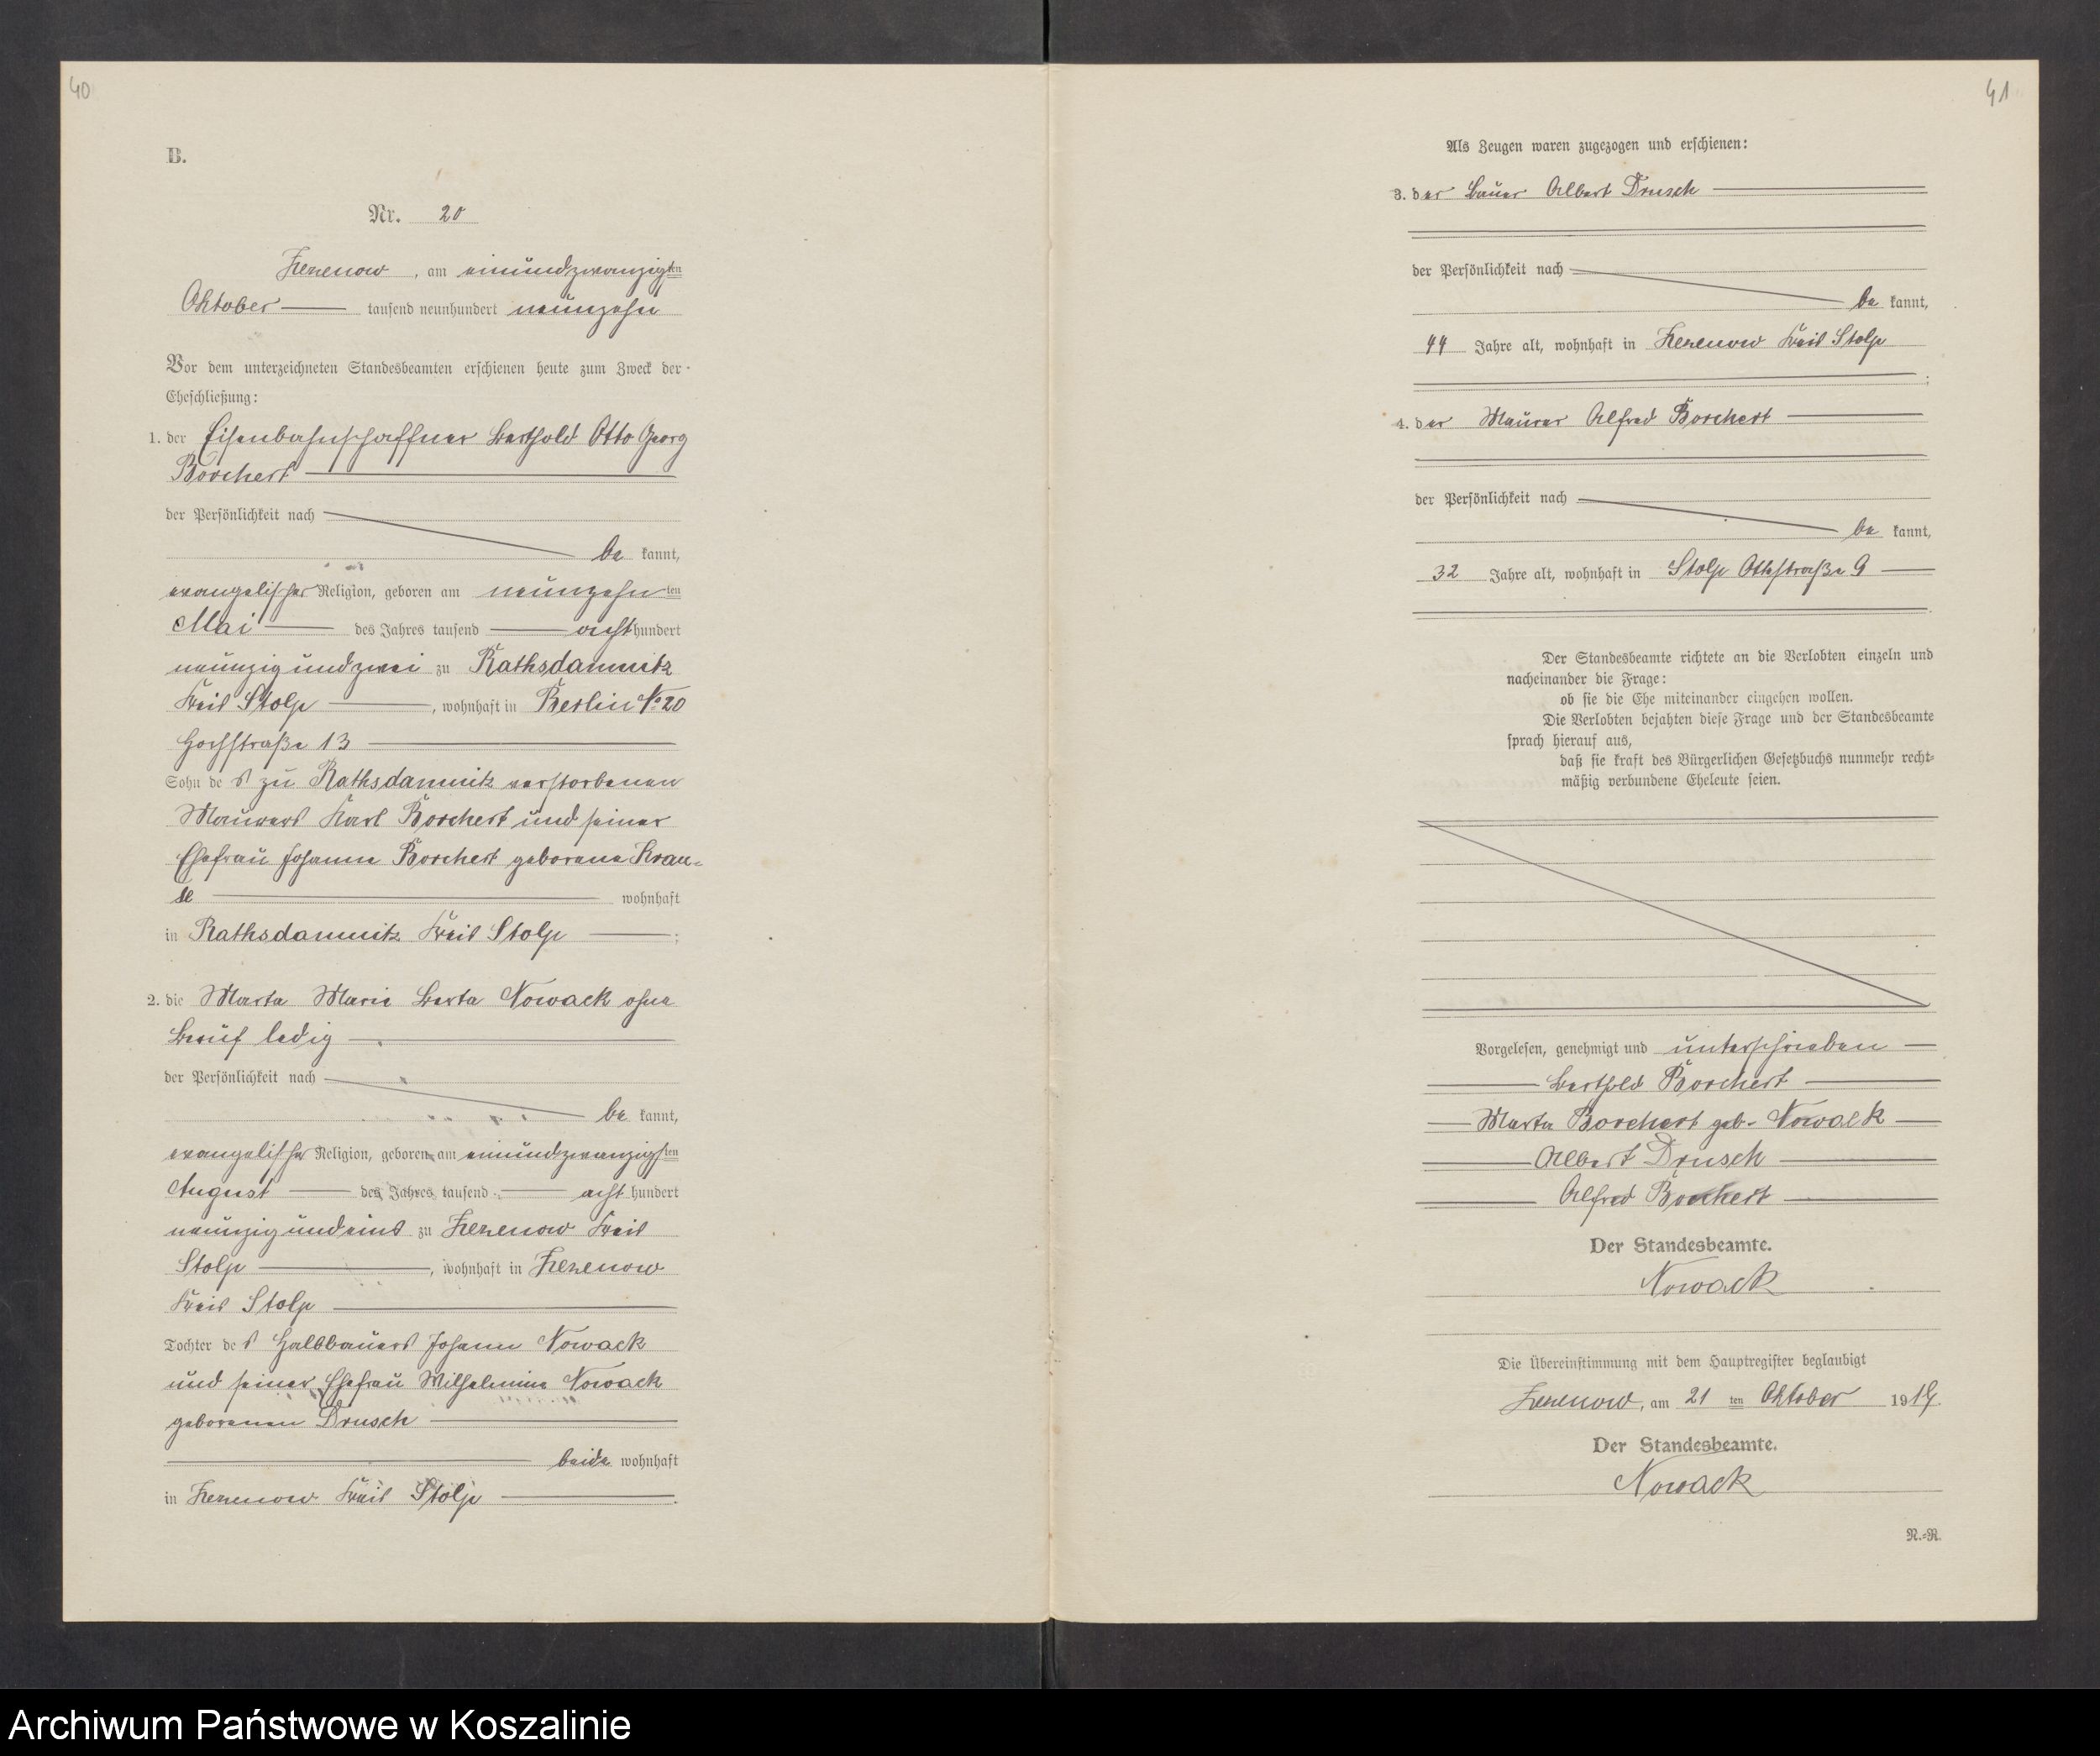 40
B.
Nr. 20
Zezenow, am einundzwanzigten
Oktober tausend neunhundert neunzehn
Vor dem unterzeichneten Standesbeamten erschienen heute zum Zweck der
Eheschließung:
1. der Eisenbahnschaffner Berthold Otto Georg
Borchert
der Persönlichkeit nach
be kannt,
evangelischer Religion, geboren am neunzehnten
Mai des Jahres tausend achthundert
neunzig und zwei zu Rathsdamnitz
Kreis Stolp, wohnhaft in Berlin No 20
Hochstraße 13
Sohn des zu Rathsdamnitz verstorbenen
Maurers Karl Borchert und seiner
Ehefrau Johanne Borchert geborene Krau-
se wohnhaft
in Rathsdamnitz Kreis Stolp;
2. die Marta Marie Berta Nowack ohne
Beruf ledig
der Persönlichkeit nach
be kannt,
evangelischer Religion, geboren am einundzwanzigsten
August des Jahres tausend acht hundert
neunzig und eins zu Zezenow Kreis
Stolp, wohnhaft in Zezenow
Kreis Stolp
Tochter des Halbbauers Johann Nowack
und seiner Ehefrau Wilhelmine Nowack
geborenen Drusch
beide wohnhaft
in Zezenow Kreis Stolp.
41
Als Zeugen waren zugezogen und erschienen:
3. der Bauer Albert Drusch
der Persönlichkeit nach
be kannt,
44 Jahre alt, wohnhaft in Zezenow Kreis Stolp
;
4. der Maurer Alfred Borchert
der Persönlichkeit nach
be kannt,
32 Jahre alt, wohnhaft in Stolp Ottostraße 9
.
Der Standesbeamte richtete an die Verlobten einzeln und
nacheinander die Frage:
ob sie die Ehe miteinander eingehen wollen.
Die Verlobten bejahten diese Frage und der Standesbeamte
sprach hierauf aus,
daß sie kraft des Bürgerlichen Gesetzbuchs nunmehr recht-
mäßig verbundene Eheleute seien.
Vorgelesen, genehmigt und unterschrieben
Berthold Borchert
Marta Borchert geb. Nowack
Albert Drusch
Alfred Borchert
Der Standesbeamte.
Nowack
Die Übereinstimmung mit dem Hauptregister beglaubigt
Zezenow, am 21 ten Oktober 1919.
Der Standesbeamte.
Nowack
N.-R.
Archiwum Państwowe w Koszalinie